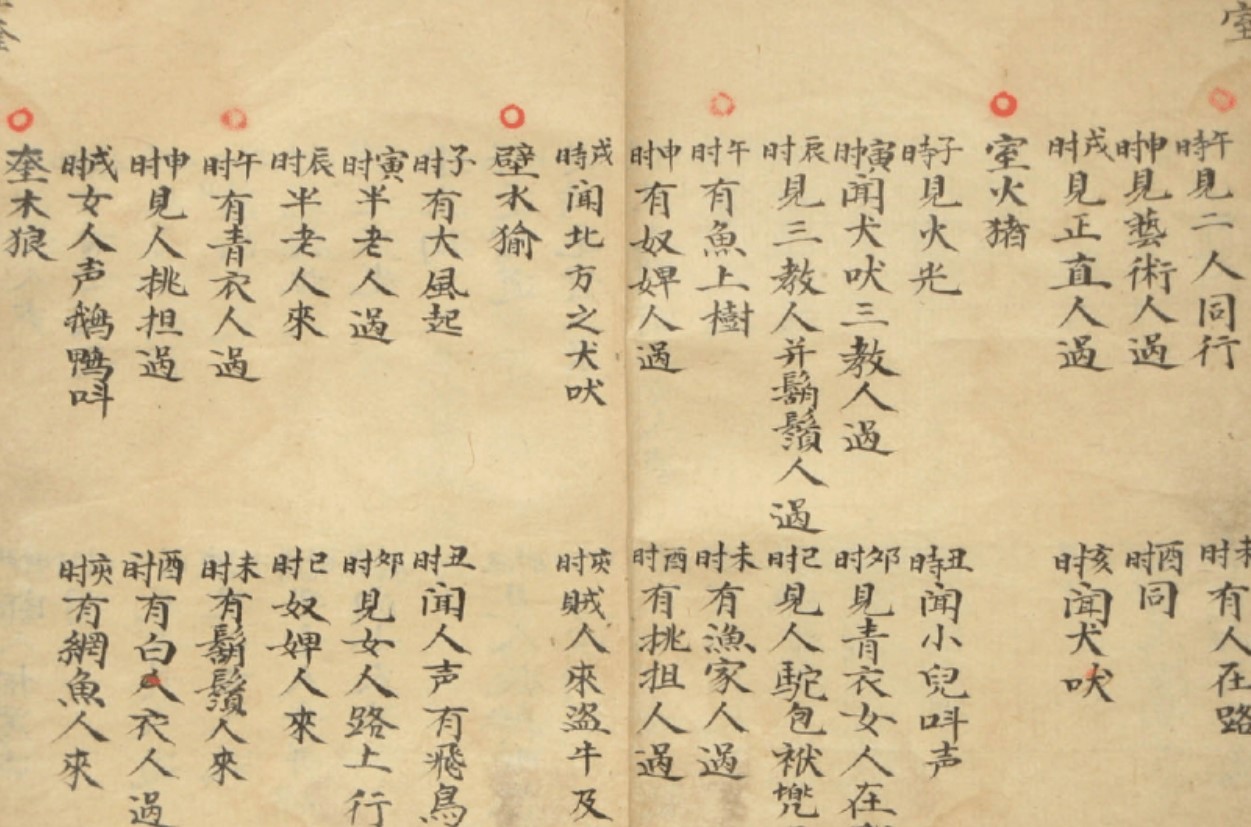 室
午時見二人同行
未时有人在路
申时見藝術人過
酉时同
戌时見正直人過
亥时聞犬吠
室火猪
子時見火光
丑時聞小兒呌声
寅时聞犬吠三教人過
夘时見青衣女人在
辰时見三教人并鬍鬚人過
巳时見人駝包袱
午时有魚上樹
未时有漁家人過
申时有奴婢人過
酉时有挑担人過
戌時聞北方之犬吠
亥时賊人來盜牛及
壁水㺄
子时有大風起
丑时聞人声有飛鳥
寅时半老人過
夘时見女人路上行
辰时半老人來
巳时奴婢人來
午时有青衣人過
未时有鬍鬚人來
申时見人挑担過
酉时有白衣人過
戌时女人声鵝鴨呌
亥时有網魚人來
奎
奎木狼